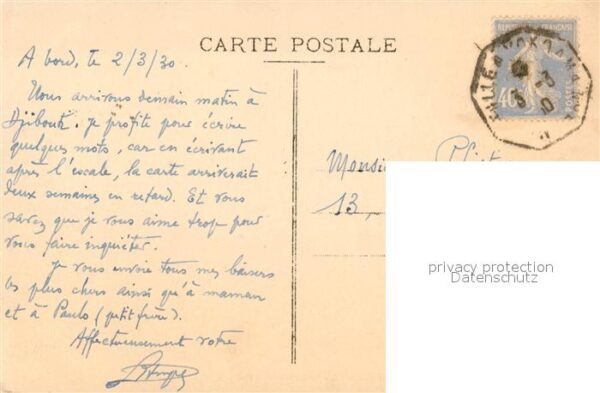 CARTE POSTALE
A bord, le 2/3/30.
Nous arrivons demain matin à
Djibouti. je profite pour écrire
quelques mots, car en écrivant
après l'escale, la carte arriverait
deux semaines en retard. Et vous
savez que je vous aime trop pour
vous faire inquiéter.
Je vous envoie tous mes baisers
les plus chers ainsi qu'à maman
et à Paulo (petit frère).
Affectueusement votre
REPUBLIQUE FRANÇAISE
40
POSTES
YOKOHAMA
Monsieur
13,
privacy protection
Datenschutz